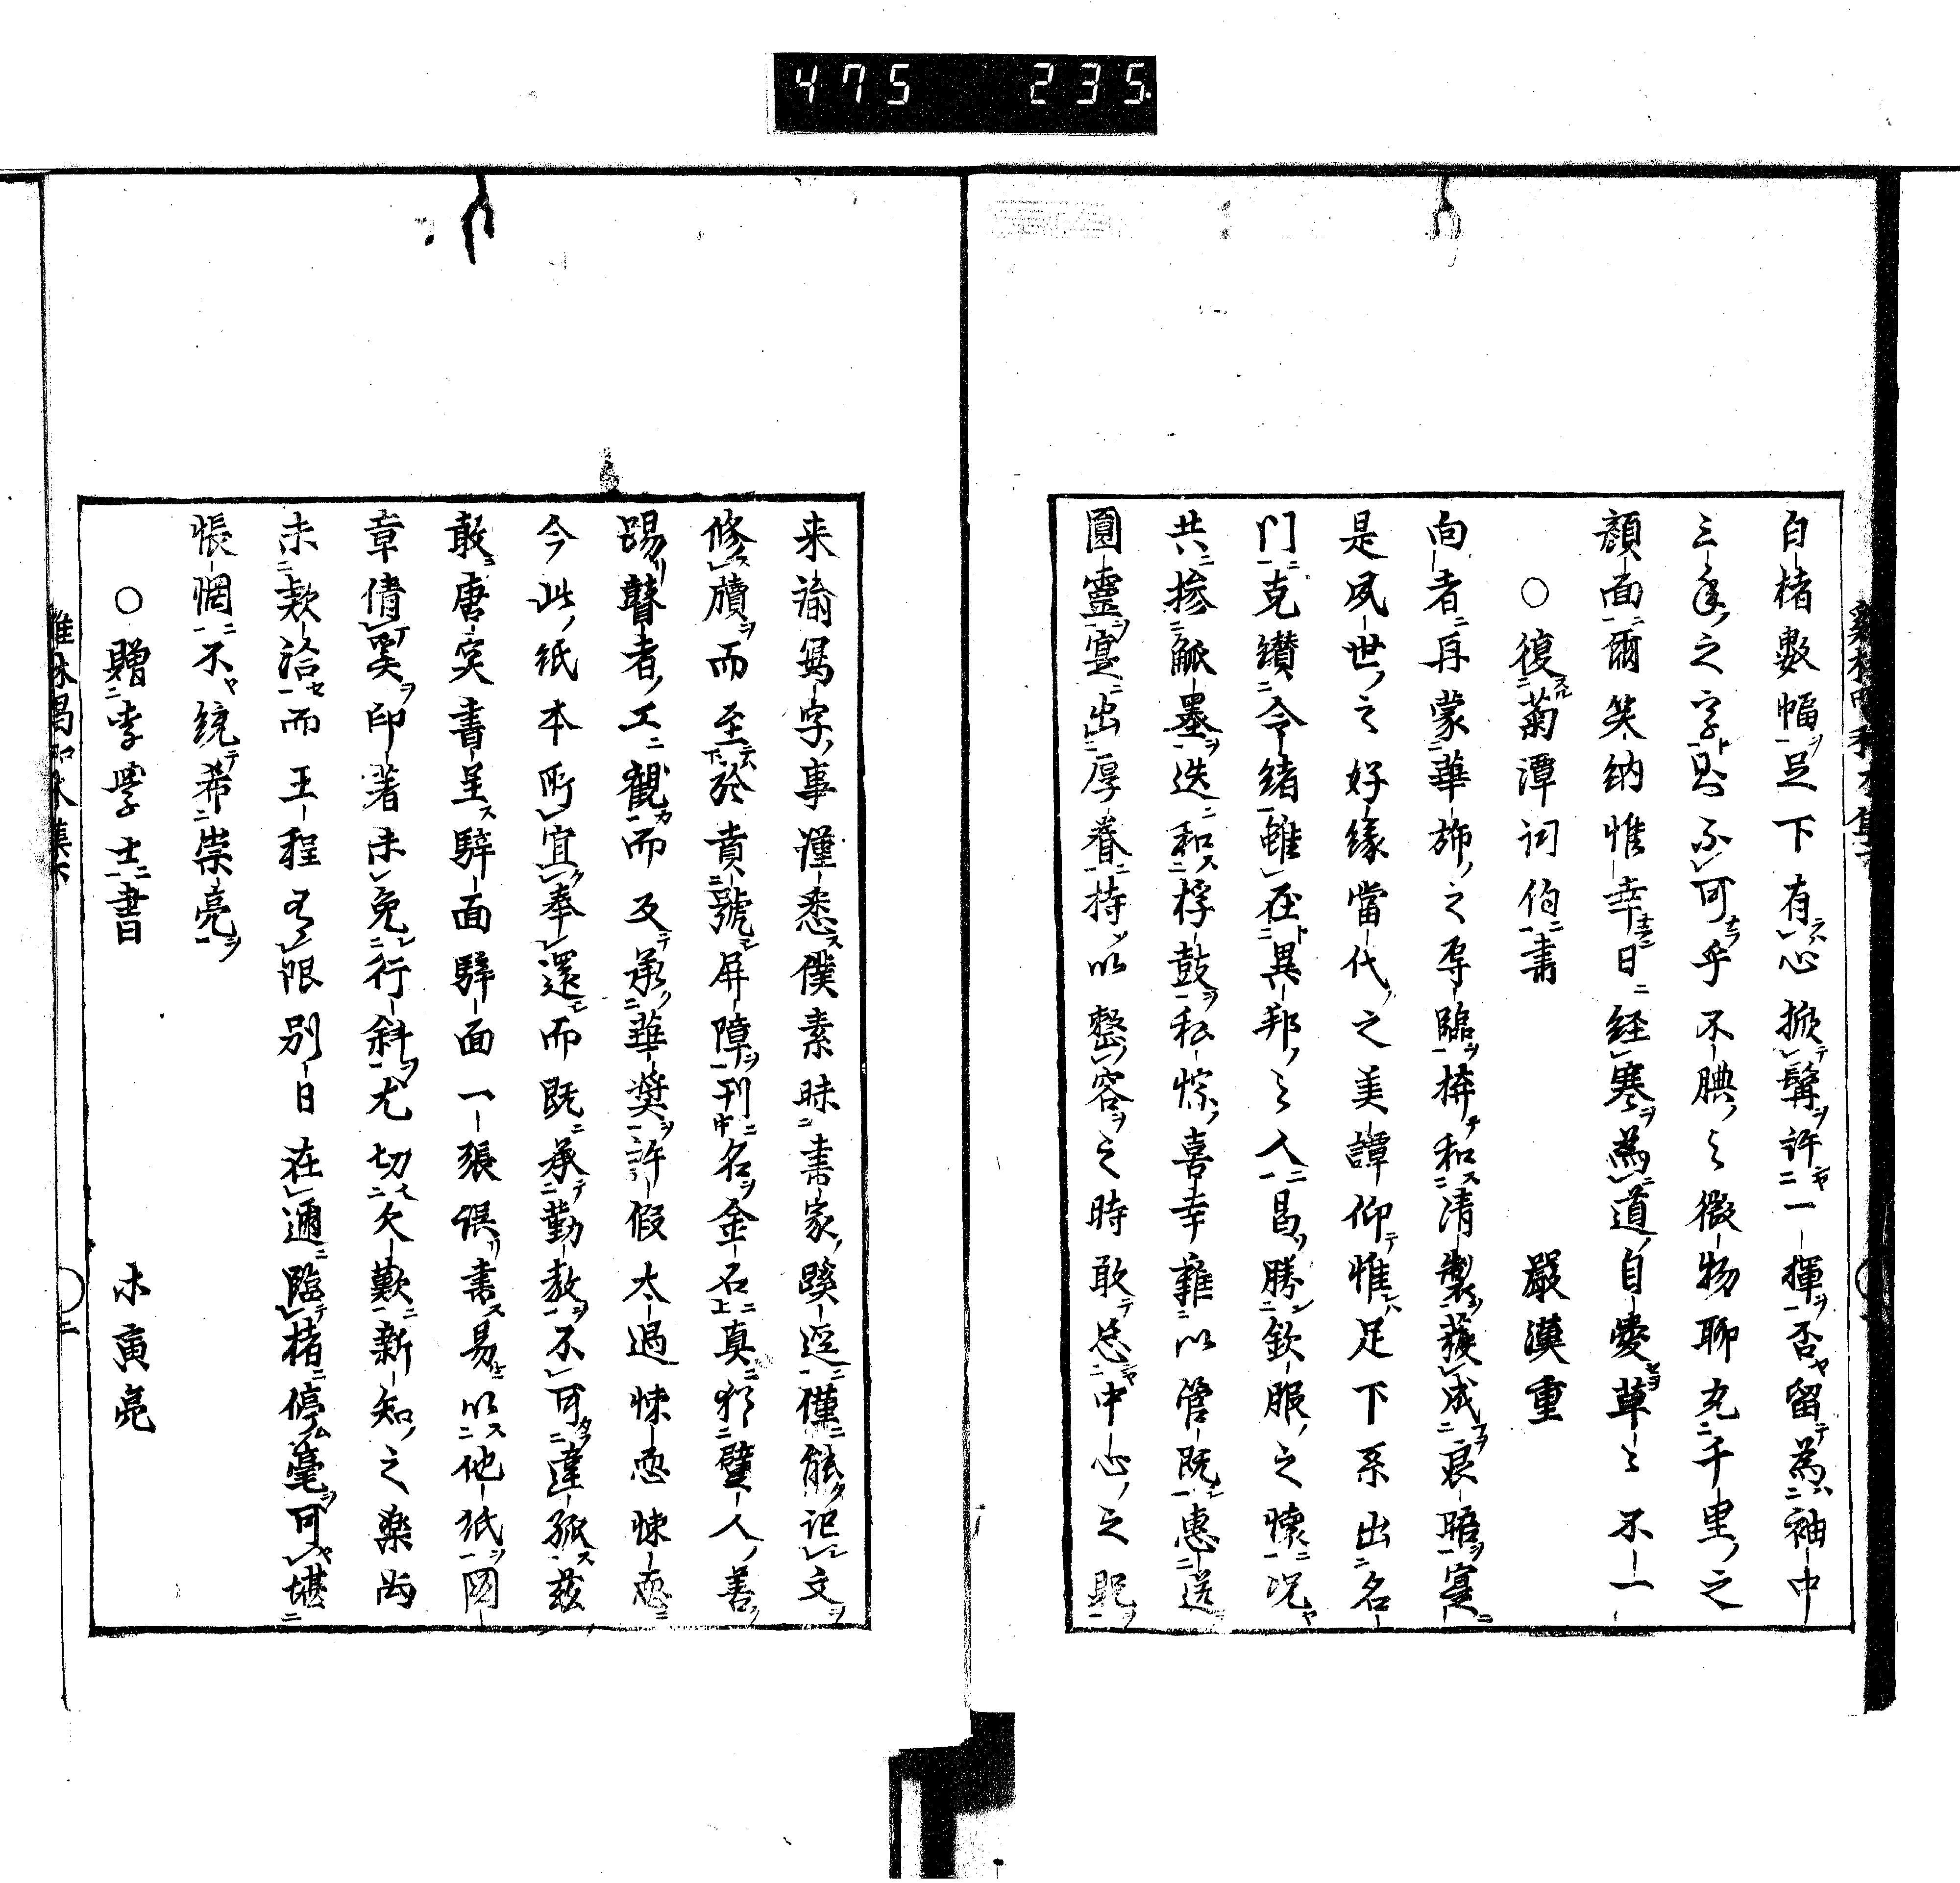 475 235
白楮數幅足下有心掀髯許一揮否留為袖中
三年之字則不可乎不腆之微物聊充千里之
顏面爾笑納惟幸日経寒為道自愛草〻不一
○復菊潭詞伯書 嚴漢重
向者再蒙華旆之辱臨拚和清製獲成衷晤寔
是夙世之好緣當代之美譚仰惟足下系出名
門克纉令緒雖在異邦之人曷勝欽服之懷况
共摻觚墨迭和桴鼓私悰喜幸難以管既惠送
圓靈寔出厚眷持以整容之時敢忘中心之貺
来諭寫字事謹悉僕素昧書家蹊逕僅能記文
修牘而至於賁號屏障刊名金石真猶躄人善
踢瞽者工觀而及承華奬許假太過悚恧悚恧
今此紙本所宜奉還而既承勤教不可違孤茲
敢唐突書呈騂面騂面一張誤書易以他紙圖
章倩䂓印著未免行斜尤切欠歎新知之樂尚
未款洽而王程有限別日在邇臨楮停毫可堪
悵惘不統希崇亮
○贈李學士書 木寅亮